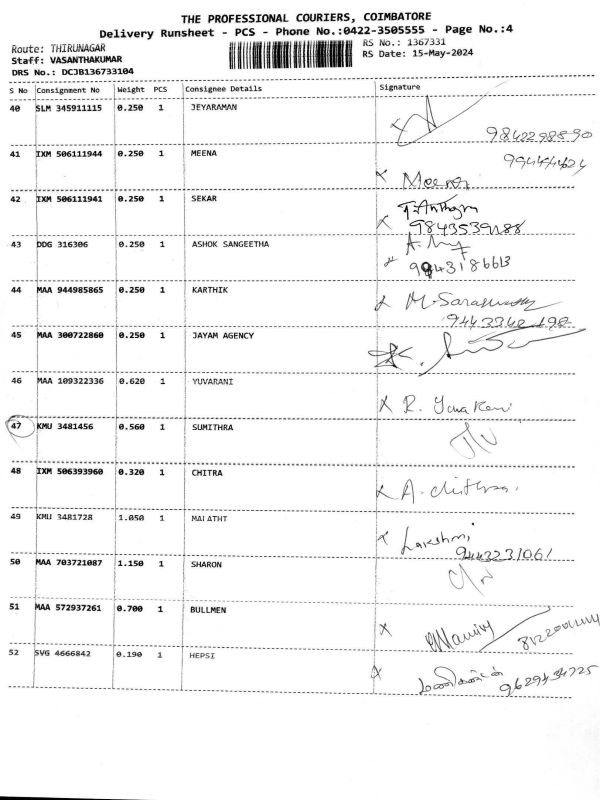 THE PROFESSIONAL COURIERS, COIMBATORE
Delivery Runsheet - PCS - Phone No.:0422-3505555 - Page No.:4
Route: THIRUNAGAR RS No.: 1367331
Staff: VASANTHAKUMAR RS Date: 15-May-2024
DRS No.: DCJB136733104
S No Consignment No Weight PCS Consignee Details Signature
40 SLM 345911115 0.250 1 JEYARAMAN
9842298890
41 IXM 506111944 0.250 1 MEENA
x Meena
42 IXM 506111941 0.250 1 SEKAR
x 9843539188
43 DDG 316306 0.250 1 ASHOK SANGEETHA
44 MAA 944985865 0.250 1 KARTHIK
x M. Saraswathy
9443342198
45 MAA 300722860 0.250 1 JAYAM AGENCY
46 MAA 109322336 0.620 1 YUVARANI
x R. Yuvakani
47 KMU 3481456 0.560 1 SUMITHRA
48 IXM 506393960 0.320 1 CHITRA
x A. chithra.
49 KMU 3481728 1.050 1 MALATHI
x Lakshmi
9443231061
50 MAA 703721087 1.150 1 SHARON
51 MAA 572937261 0.700 1 BULLMEN
x
52 SVG 4666842 0.190 1 HEPSI
x மணிகண்டன் 9629434725